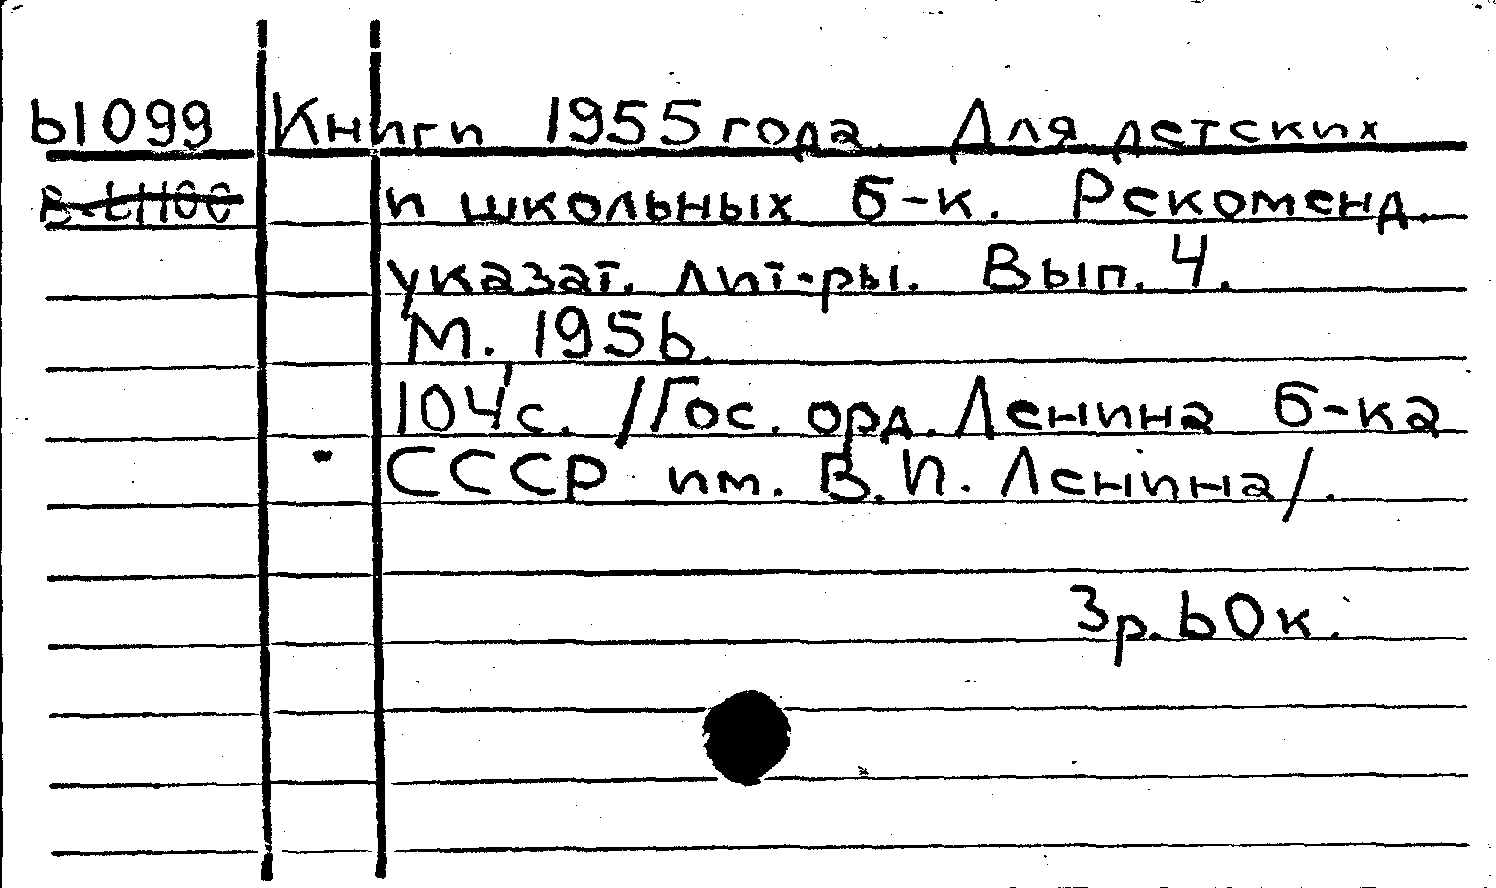 61099 Книги 1955 года. Для детских
и школьных б-к. Рекоменд.
указат. лит-ры. Вып. 4.
М. 1956.
104 с. /Гос. орд. Ленина б-ка
СССР им. В.И. Ленина/.
3р. 60к.